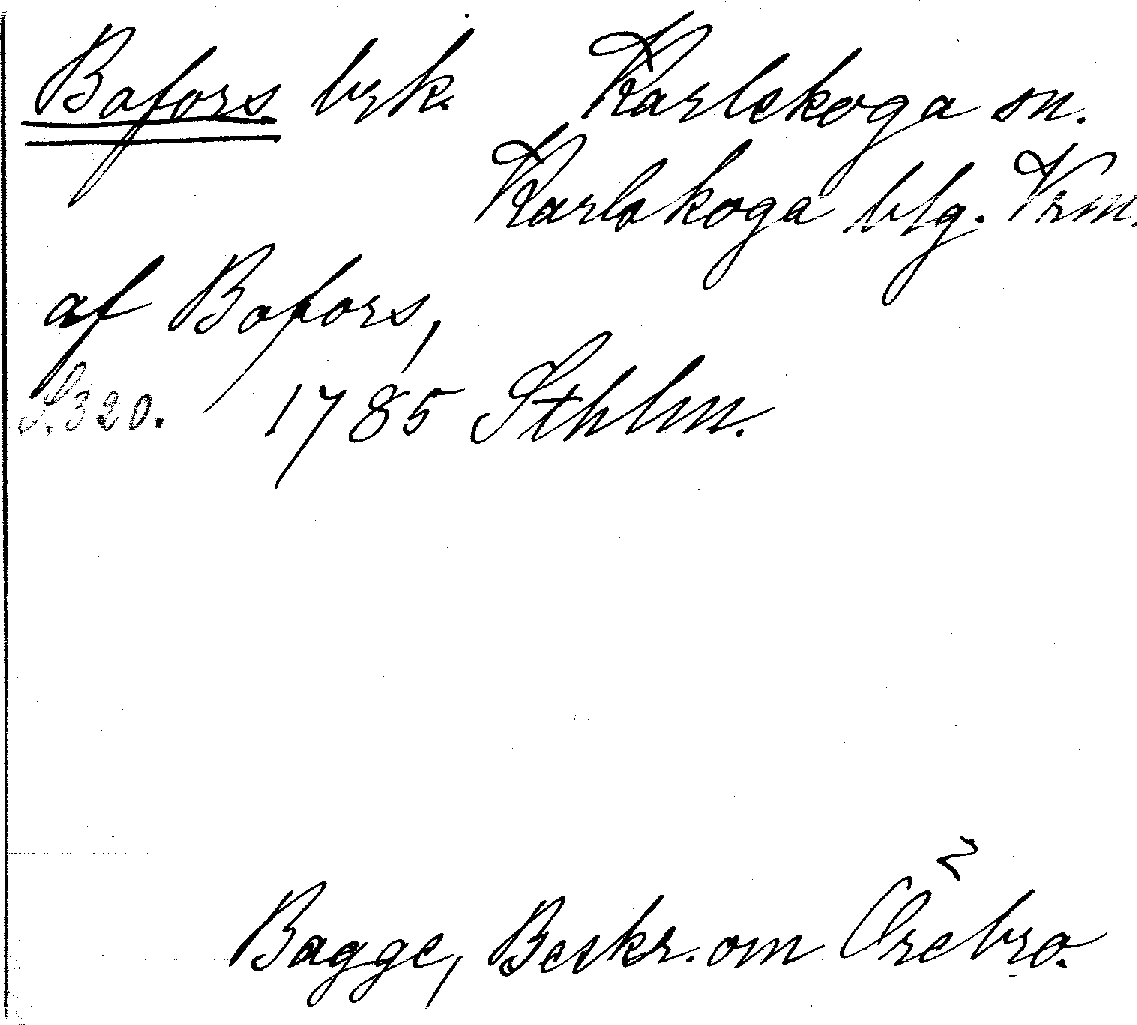 Bofors brk. Karlskoga sn.
Karlskoga blg. Vrm.
af Bofors,
S. 320. 1785 Sthlm.
Bagge, Beskr. om Örebro.